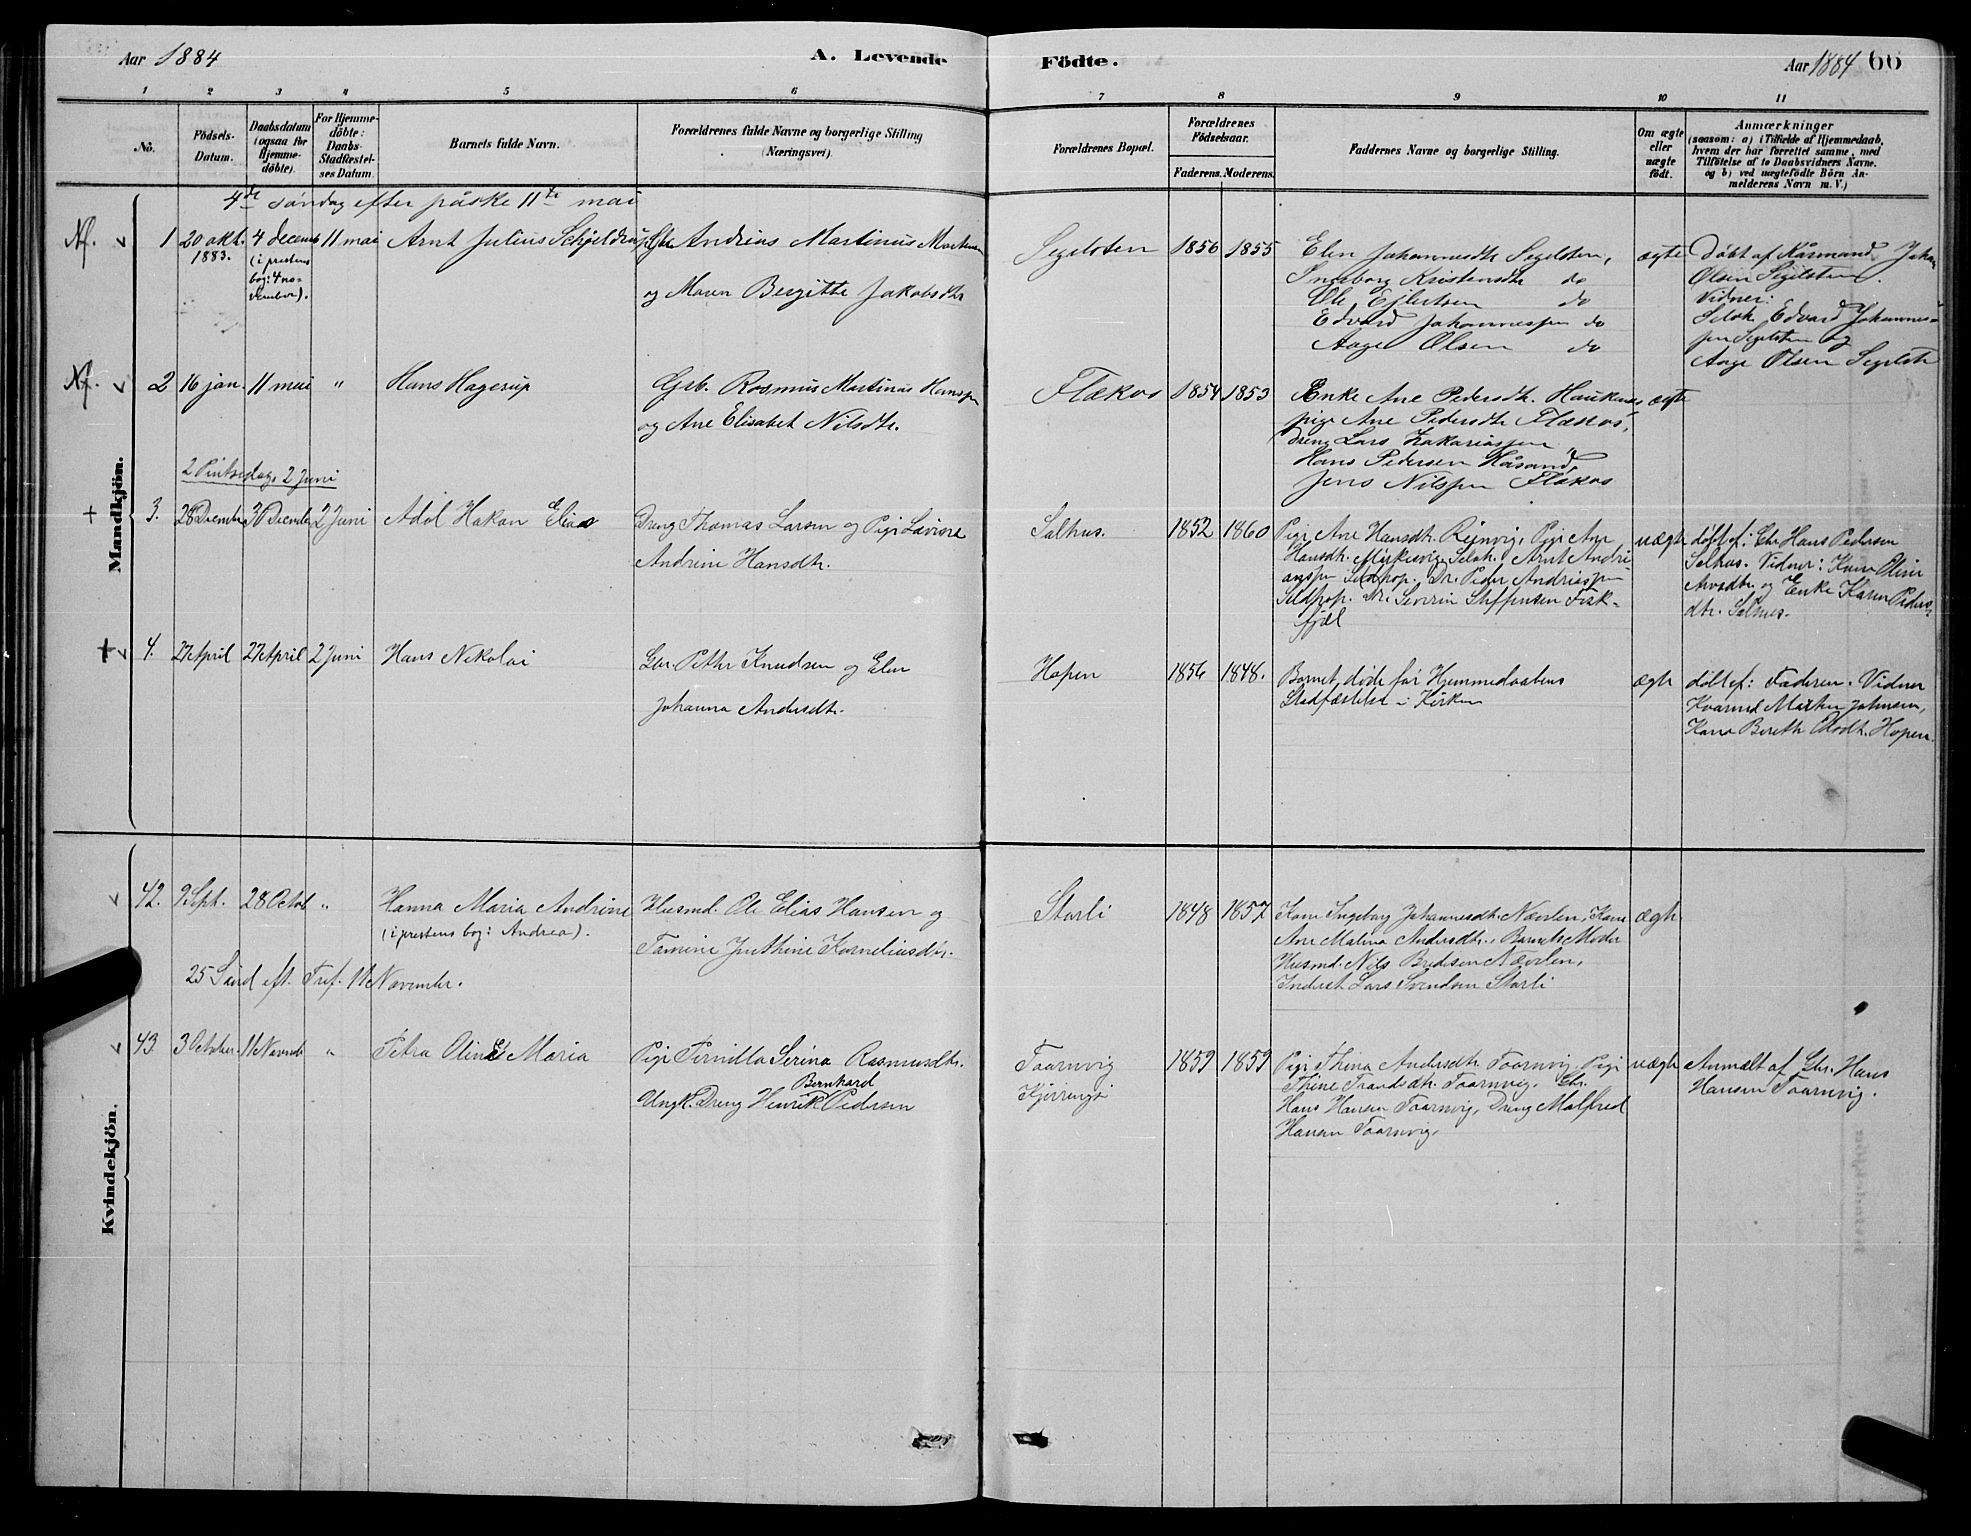 Aar 1884
A. Levende
Födte.
Aar 1884 66
1 2 3 4 5 6 7 8 9 10 11
No.
Födsels-
Datum.
Daabsdatum
(ogsaa for
Hjemme-
döbte).
For Hjemme-
döbte:
Daabs-
Stadfæstel-
ses Datum.
Barnets fulde Navn.
Forældrenes fulde Navne og borgerlige Stilling
(Næringsvei).
Forældrenes Bopæl.
Forældrenes
Födselsaar.
Faderens. Moderens.
Faddernes Navne og borgerlige Stilling.
Om ægte
eller
uægte
födt.
Anmærkninger
(saasom: a) i Tilfælde af Hjemmedaab,
hvem der har forrettet samme, med
Tilföielse af to Daabsvidners Navne.
og b) ved uægtefödte Börn An-
melderens Navn m. V.)
Mandkjön.
4de søndag efter påske 11te mai
Nf. 1 20 okt.
1883.
4 decemb
(i prestens
bog: 4 no-
vember).
11 mai
Arnt Julius Schjeldrup
Gbr. Andreas Martinus Martinsen
og Maren Bergitte Jakobsdtr
Segelsten
1856 1855
Elen Johannesdtr Segelsten,
Ingeborg Kristensdtr do
Ole Ejlertsen do
Edvard Johannessen do
Aage Olsen do
ægte
Døbt af Kårmand Johan
Olsen Segelsten.
Vidner:
Selvk. Edvard Johannes-
sen Segelsten og
Aage Olsen Segelste
Nf. 2 16 jan. 11 mai "
Hans Hagerup
Grb. Rasmus Martinus Hanssen
og Ane Elisabet Nilsdtr.
Flækos
1854 1853
Enke Ane Pedersdtr. Haukenes
pige Ane Pedersdtr Flækos,
dreng Lars Zakariassen,
Hans Pedersen Håsand,
Jens Nilssen Flækos
ægte
2 Pintsedag, 2 Juni
+ 3. 28 Decembr 30 Decembr 2 Juni
Adol Hakon Elias
Dreng Thomas Larsen og Pige Lavina
Andrine Hansdtr.
Salhus.
1852 1860
Pige Ane Hansdtr. Reinvig, Pige Ane
Hansdtr. Mørkesvig, Selvk. Arnt Andri-
assen Seldhop. Dr. Peder Andriassen
Seldhop. Dr. Severin Steffensen Fisk-
fjæl
uægte
døbt af: Gbr Hans Pedersen
Salhus. Vidner: Kone Oline
Arntsdtr. og Enke Karen Peders-
dtr. Salhus.
+ 4. 27 April 27 April 2 Juni
Hans Nikolai
Gbr. Petter Knudsen og Elen
Johanna Andersdtr.
Hopen
1856 1848.
Barnet døde før Hjemmedaabens
Stadfæstelse i Kirken
ægte
døbt af: Faderen. Vidner
Kvarmd Martin Johnsen,
Kone Bereth Olsdtr. Hopen.
Kvindekjön.
42. 9 Sept. 28 Octob "
Hanna Maria Andrine
(i prestens bog: Andrea).
Husmd. Ole Elias Hansen og
Tomine Justhine Korneliusdtr.
Storli
1848 1857
Kone Ingeborg Johannesdtr. Nævlen, Kone
Ane Malena Andersdtr., Barnets Moder
Husmd. Nils Bredesen Nævlen,
Inderst Lars Svendsen Storli
ægte
25 Sønd eft. Tref. 11 November.
43. 3 October. 11 Novemb "
Petra Oline Maria
Pige Pernilla Serina Rasmusdtr.
Bernhard
Ungk. Dreng Henrik Pedersen
Taarnvig
Kjerringø
1859 1859
Pige Thina Andersdtr. Taarnvig, Pige
Thine Trandsdtr. Taarnvig. Gbr.
Hans Hansen Taarnvig, Dreng Malfred
Hansen Taarnvig.
uægte
Anmeldt af Gbr. Hans
Hansen Taarnvig.